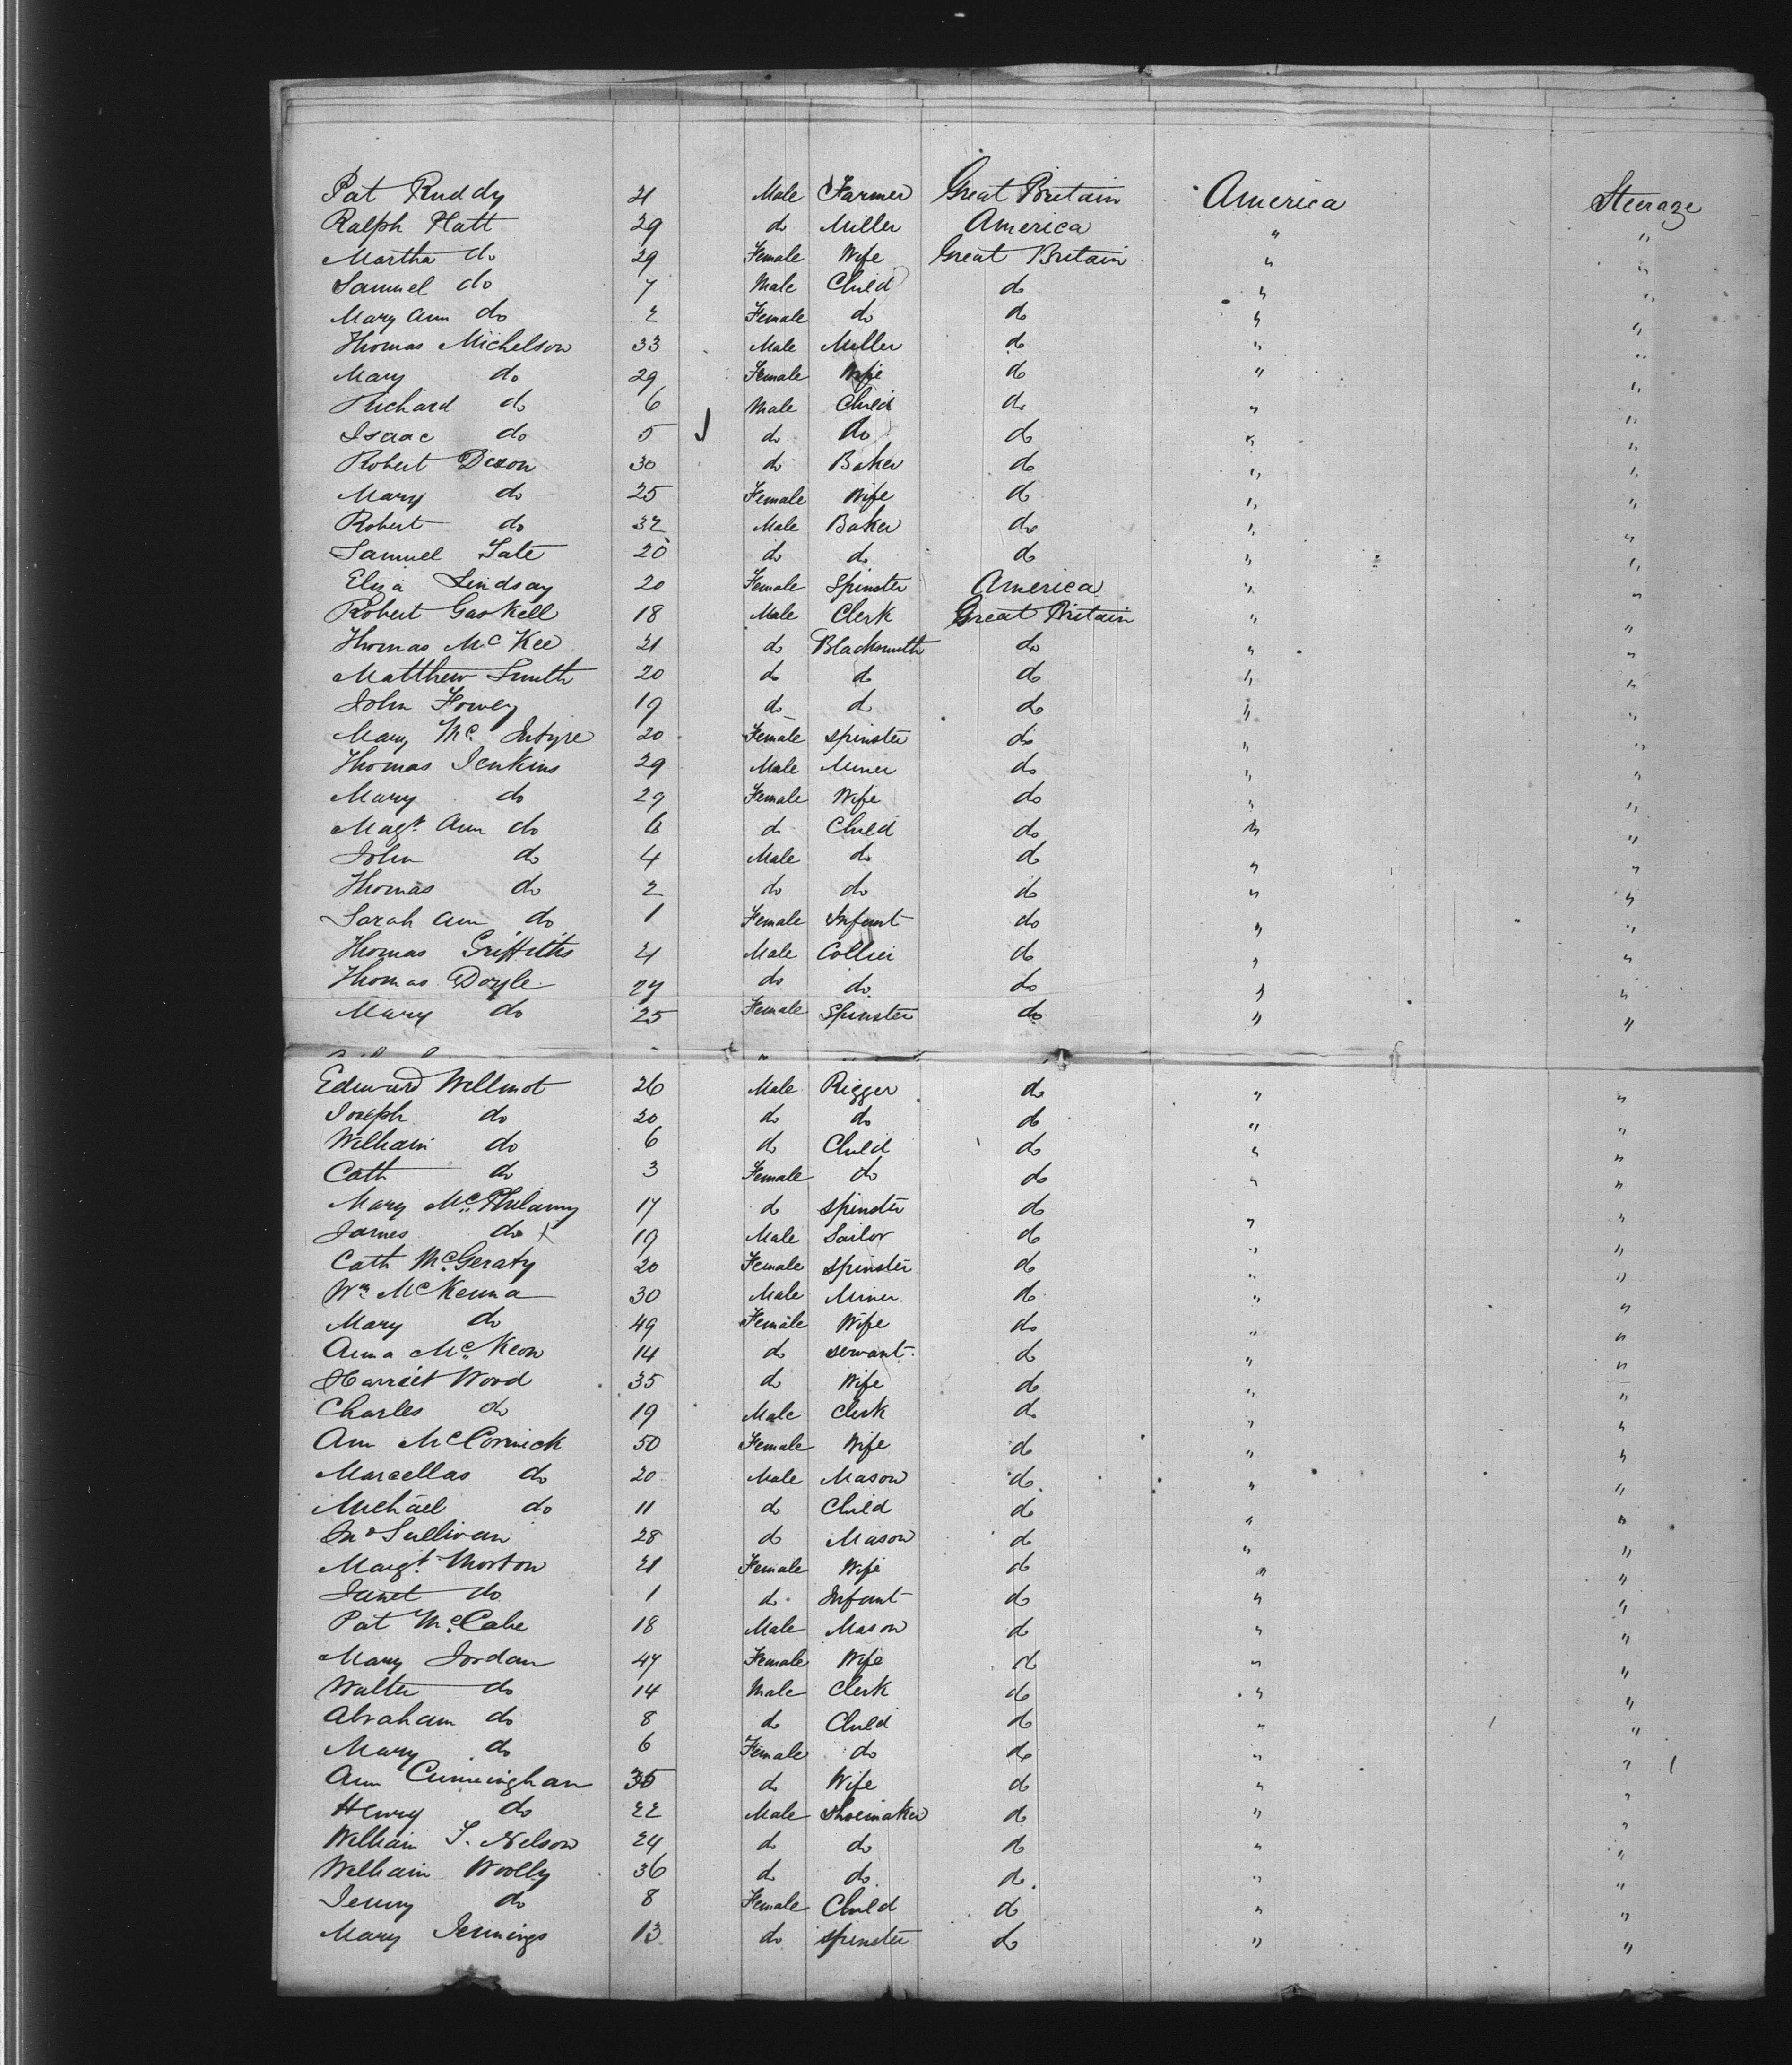 Pat Ruddy 21 Male Farmer Great Britain America Steerage
Ralph Platt 29 do Miller America " "
Martha do 29 Female Wife Great Britain " "
Samuel do 7 Male Child do " "
Mary Ann do 2 Female do do " "
Thomas Michelson 33 Male Miller do " "
Mary do 29 Female Wife do " "
Richard do 6 Male Child do " "
Isaac do 5 do do do " "
Robert Dixon 30 do Baker do " "
Mary do 25 Female Wife do " "
Robert do 32 Male Baker do " "
Samuel Tate 20 do do do " "
Eliza Lindsay 20 Female Spinster America " "
Robert Gaskell 18 Male Clerk Great Britain " "
Thomas McKee 21 do Blacksmith do " "
Matthew Smith 20 do do do " "
John 19 do do do " "
Mary Mc Intyre 20 Female Spinster do " "
Thomas Jenkins 29 Male Miner do " "
Mary do 29 Female Wife do " "
Magt. Ann do 6 do Child do " "
John do 4 Male do do " "
Thomas do 2 do do do " "
Sarah Ann do 1 Female Infant do " "
Thomas Griffiths 21 Male Collier do " "
Thomas Doyle 27 do do do " "
Mary do 25 Female Spinster do " "
Edward Willmot 26 Male Rigger do " "
Joseph do 20 do do do " "
William do 6 do Child do " "
Cath do 3 Female do do " "
Mary 17 do Spinster do " "
James do 19 Male Sailor do " "
Cath McGeraty 20 Female Spinster do " "
Wm McKenna 30 Male Miner do " "
Mary do 49 Female Wife do " "
Anna McKeon 14 do servant do " "
Harriet Wood 35 do Wife do " "
Charles do 19 Male Clerk do " "
Ann McCormick 50 Female Wife do " "
Marcellas do 20 Male Mason do " "
Michael do 11 do Child do " "
Jno Sullivan 28 do Mason do " "
Margt. Morton 21 Female Wife do " "
Janet do 1 do Infant do " "
Pat McCabe 18 Male Mason do " "
Mary Jordan 47 Female Wife do " "
Walter do 14 Male Clerk do " "
Abraham do 8 do Child do " "
Mary do 6 Female do do " "
Ann Cunningham 35 do Wife do " "
Henry do 22 Male Shoemaker do " "
William T. Nelson 24 do do do " "
William Woolly 36 do do do " "
Jenny do 8 Female Child do " "
Mary Jennings 13 do Spinster do " "